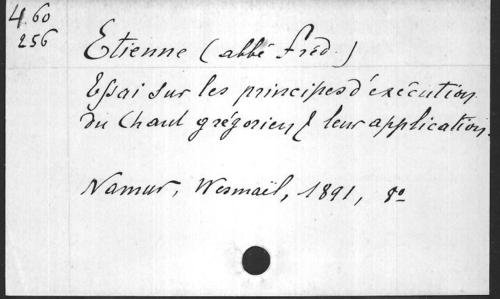 460
256
Etienne (abbé fréd.)
Essai sur les principes d'exécution
du Chant grégorien & leur application.
Namur, Wesmaël, 1891, 8o